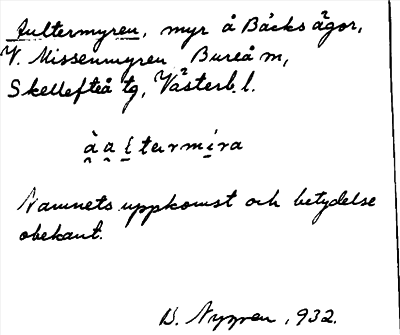 Aultermyren, myr å Bäcks ägor,
V. Missenmyren Bureå m,
Skellefteå tg, Västerb. l.
à a l̲ tærmira
Namnets uppkomst och betydelse
obekant.
D. Nygren, 1932.